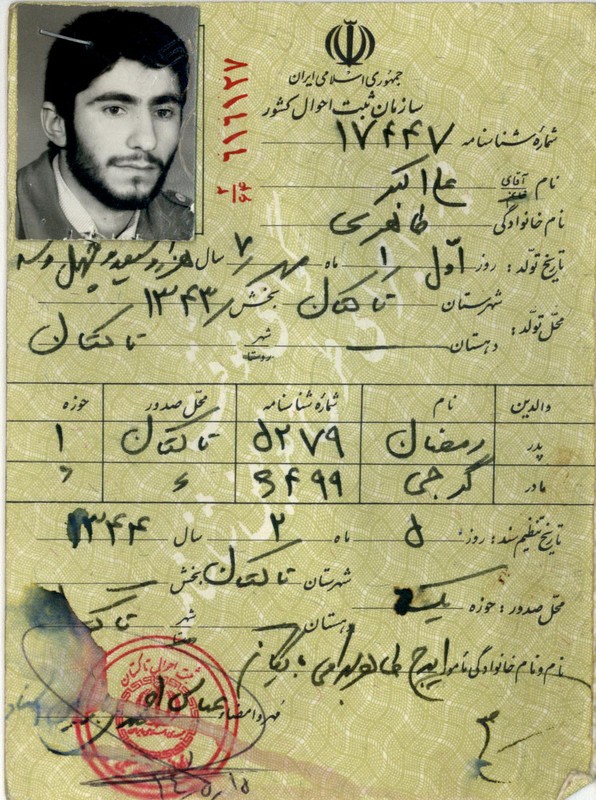 جمهوری اسلامی ایران
سازمان ثبت احوال کشور
۶۱۶۱۲۷
۲/۶۴
شمارهٔ شناسنامه ۱۷۴۴۷
نام آقای علی اکبر
نام خانوادگی طاهری
تاریخ تولد: روز اول ۱ ماه مهر ۷ سال هزار و سیصد و چهل و سه
۱۳۴۳
محل تولد: شهرستان تاکستان بخش
دهستان شهر روستا تاکستان
والدین نام شمارهٔ شناسنامه محل صدور حوزه
پدر رمضان ۵۲۷۹ تاکستان ۱
مادر گرجی
تاریخ تنظیم سند: روز ۵ ماه ۲ سال ۱۳۴۴
محل صدور: حوزه یک شهرستان تاکستان بخش
دهستان شهر
نام و نام خانوادگی مأمور ایرج
مهر و امضاء
ثبت احوال تاکستان